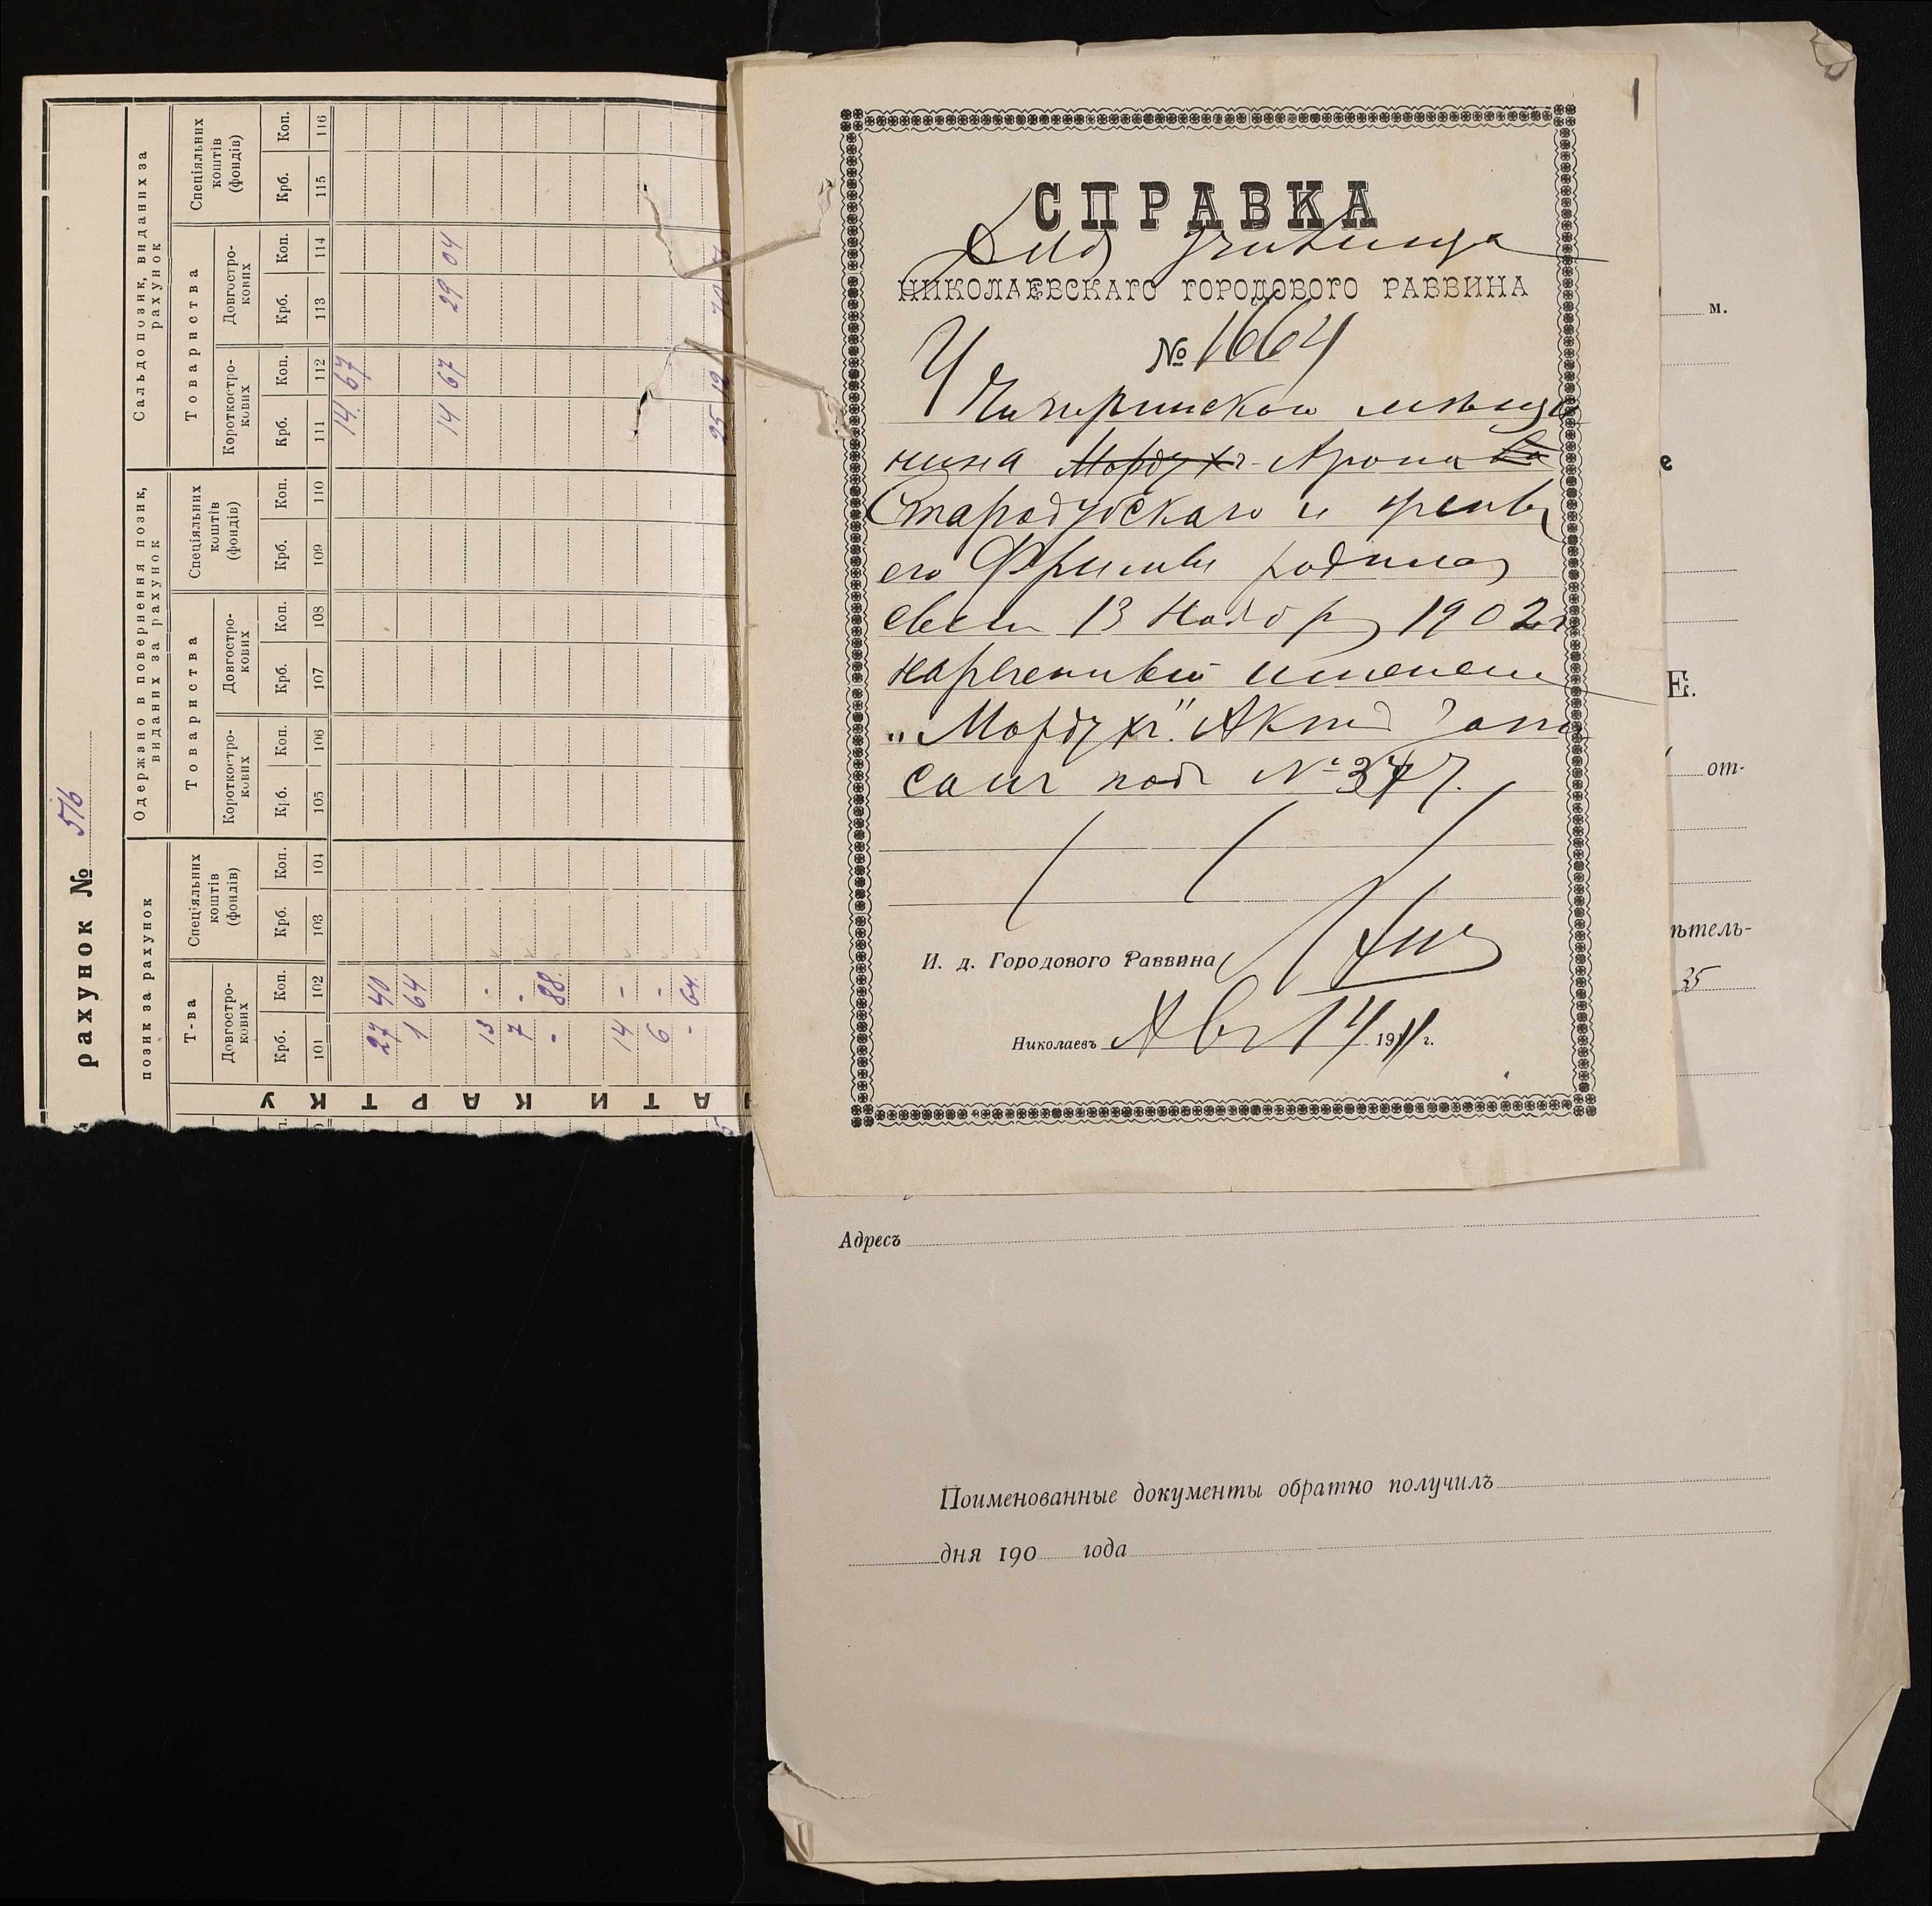 рахунок № 516
позик за рахунок
Одержано в повернення позик, виданих за рахунок
Сальдо позик, виданих за рахунок
Т-ва
Спеціяльних коштів (фондів)
Товариства
Спеціяльних коштів (фондів)
Товариства
Спеціяльних коштів (фондів)
Довгостро-кових
Короткостро-кових
Довгостро-кових
Короткостро-кових
Довгостро-кових
Крб. Коп. Крб. Коп. Крб. Коп. Крб. Коп. Крб. Коп. Крб. Коп. Крб. Коп. Крб. Коп.
101 102 103 104 105 106 107 108 109 110 111 112 113 114 115 116
14 67
27 40
1 64
14 67 29 04
13 -
7 -
- 88
14 -
6 -
- 64
25 12
АТИ КАРТКУ
1
СПРАВКА
Для училища
НИКОЛАЕВСКАГО ГОРОДОВОГО РАВВИНА
№ 1664
У Чигиринскаго мѣща
нина Мордухъ-Арона
Стародубскаго и жены
его Фрумы родился
сынъ 13 Ноября 1902 г
нареченный именемъ
„Мордухъ". Актъ запи
санъ подъ № 377.
И. д. Городового Раввина
Николаевъ Авг 14 1911 г.
м.
е
Е.
от-
ѣтель-
35
Адресъ
Поименованные документы обратно получилъ
дня 190 года